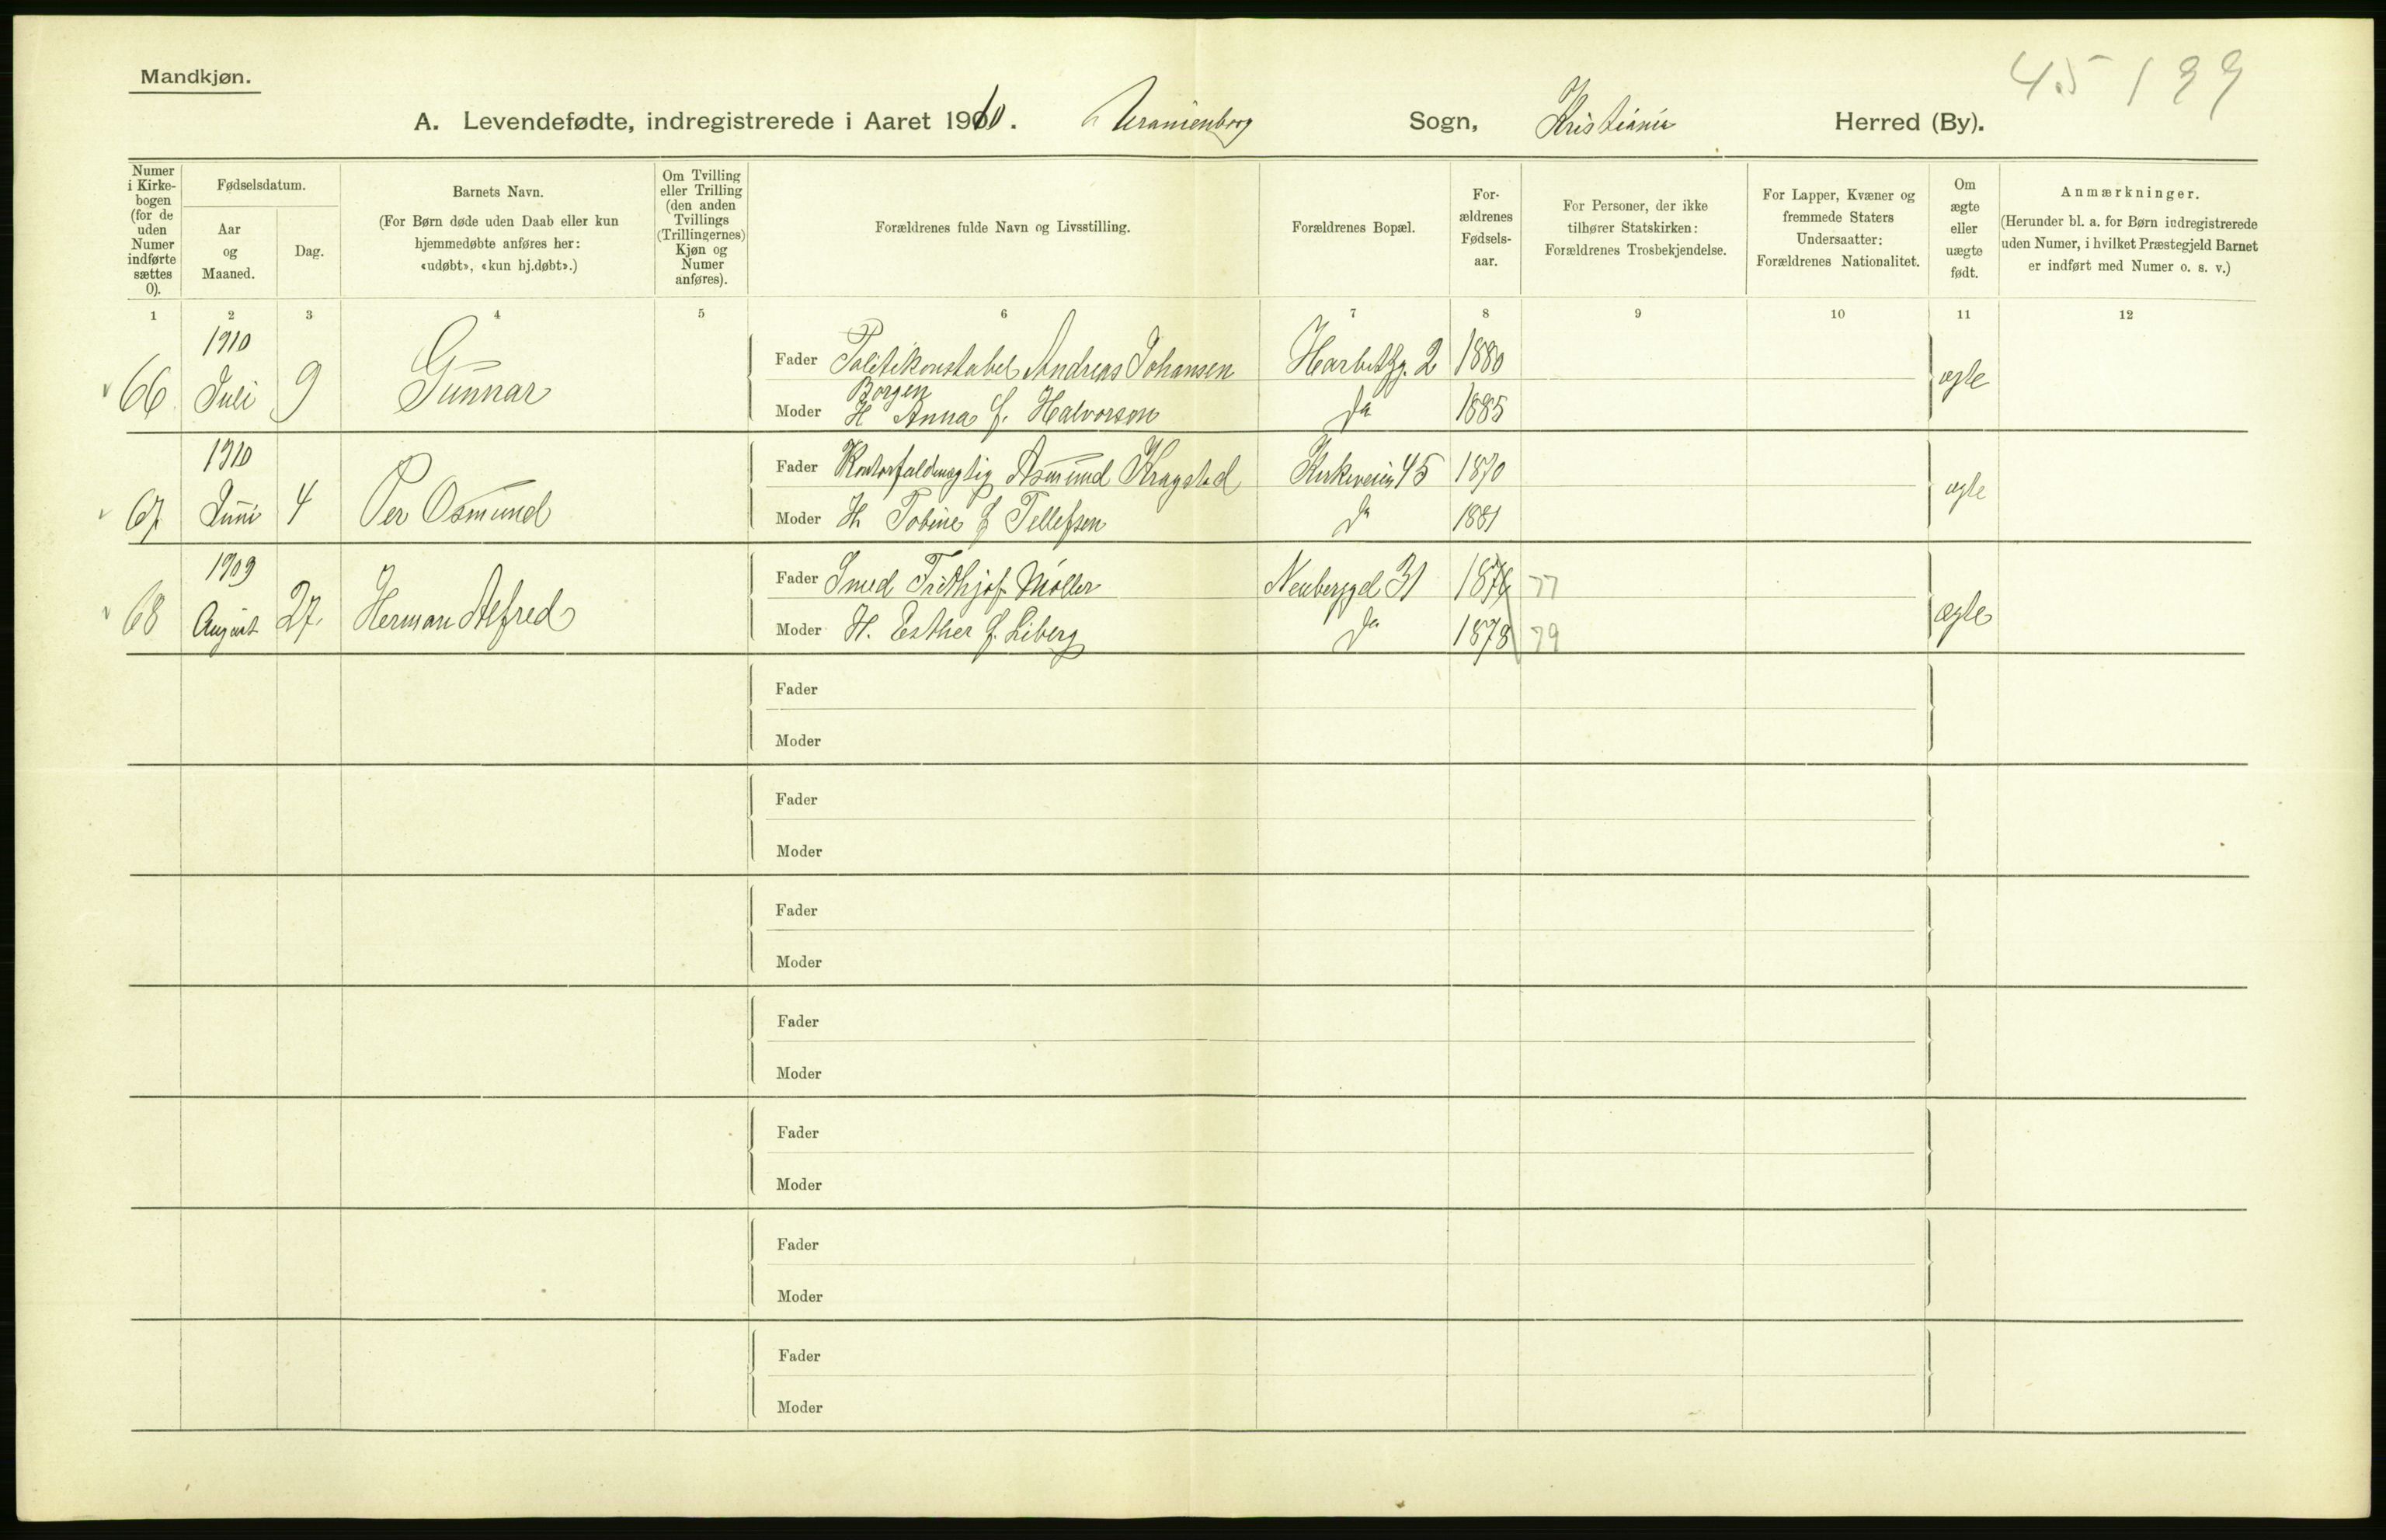 45 199
Mandkjøn.
A. Levendefødte, indregistrerede i Aaret 1910. Uranienborg Sogn, Kristiania Herred (By).
Numer i Kirke-bogen (for de uden Numer indførte sættes 0).
Fødselsdatum.
Aar og Maaned.
Dag.
Barnets Navn.
(For Børn døde uden Daab eller kun hjemmedøbte anføres her: «udøbt», «kun hj.døbt».)
Om Tvilling eller Trilling (den anden Tvillings (Trillingernes) Kjøn og Numer anføres).
Forældrenes fulde Navn og Livsstilling.
Forældrenes Bopæl.
For-ældrenes Fødsels-aar.
For Personer, der ikke tilhører Statskirken: Forældrenes Trosbekjendelse.
For Lapper, Kvæner og fremmede Staters Undersaatter: Forældrenes Nationalitet.
Om ægte eller uægte født.
Anmærkninger.
(Herunder bl. a. for Børn indregistrerede uden Numer, i hvilket Præstegjeld Barnet er indført med Numer o. s. v.)
1 2 3 4 5 6 7 8 9 10 11 12
66 1910 Juli 9 Gunnar
Fader Politikonstabel Andreas Johansen Borgen 2 1880 ægte
Moder H Anna f. Halvorsen Do 1885
67 1910 Juni 4 Per Osmund
Fader Kontorfuldmægtig Asmund Kragstad Kirkeveien 45 1870 ægte
Moder H Tobine f Tellefsen Do 1881
68 1909 August 27. Herman Alfred
Fader Smed Frithjof Møller Neuberggd 31 77 ægte
Moder H. Esther f. Liberg Do 1878 79
Fader
Moder
Fader
Moder
Fader
Moder
Fader
Moder
Fader
Moder
Fader
Moder
Fader
Moder